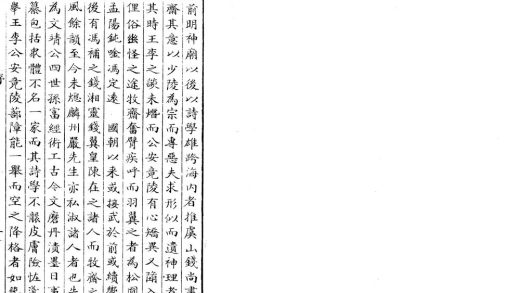 前明神廟以後以詩學雄跨海內者推虞山錢尚書
齋其意以少陵為宗而專惡夫求形似而遺神理者
其時王李之燄未熸而公安竟陵有心矯異又蹈入
俚俗幽怪之途牧齋奮臂疾呼而羽翼之者為松圓
孟陽鈍唫馮定遠　國朝以來或接武於前或續響
後有馮補之錢湘靈錢翼皇陳在之諸人而牧齋之
風餘韻至今未熄麟州嚴先生亦私淑諸人者也先
為文靖公四世孫富經術工古今文磨丹漬墨日事
纂包括衆體不名一家而其詩學不襲皮膚險怪遂
舉王李公安竟陵蔀障能一舉而空之降格者如